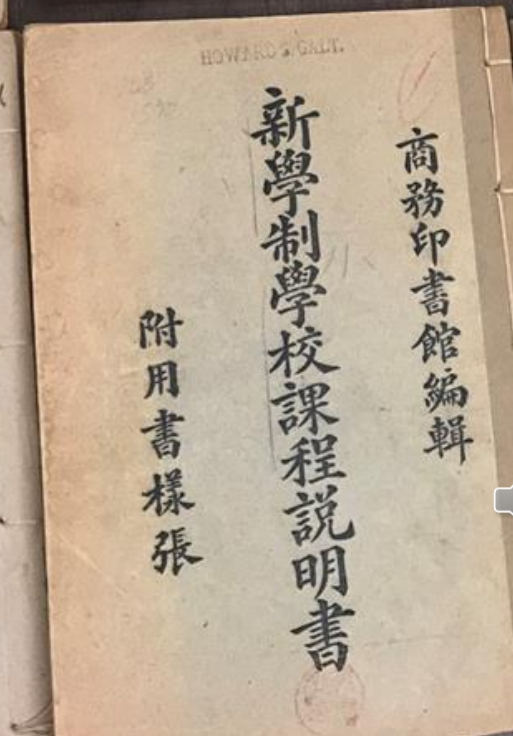 HOWARD S. GALT.
商務印書館編輯
新學制學校課程説明書
附用書樣張